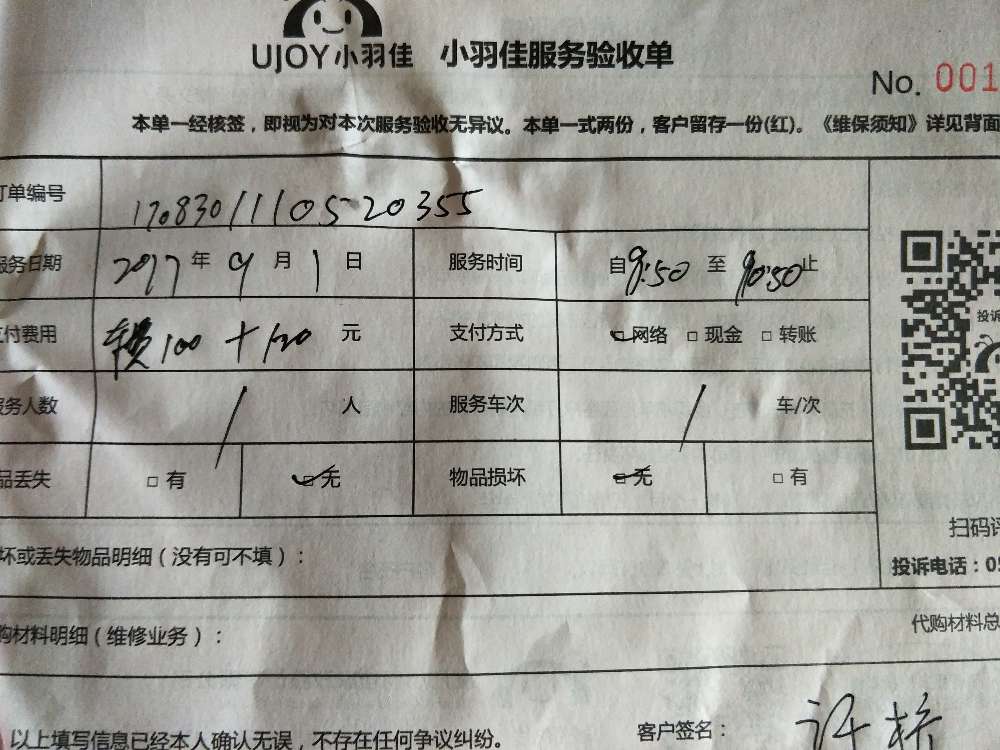 UJOY小羽佳 小羽佳服务验收单
No. 001
本单一经核签，即视为对本次服务验收无异议。本单一式两份，客户留存一份(红)。《维保须知》详见背面
订单编号 1708301110520355
服务日期 2017年9月1日 服务时间 自9:50至10:50止
支付费用 100+120元 支付方式 网络 □现金 □转账
服务人数 1人 服务车次 1车/次
品丢失 □有 □无 物品损坏 □无 □有
坏或丢失物品明细（没有可不填）：
扫码评
投诉电话：05
购材料明细（维修业务）：
代购材料总
以上填写信息已经本人确认无误，不存在任何争议纠纷。
客户签名：
投诉